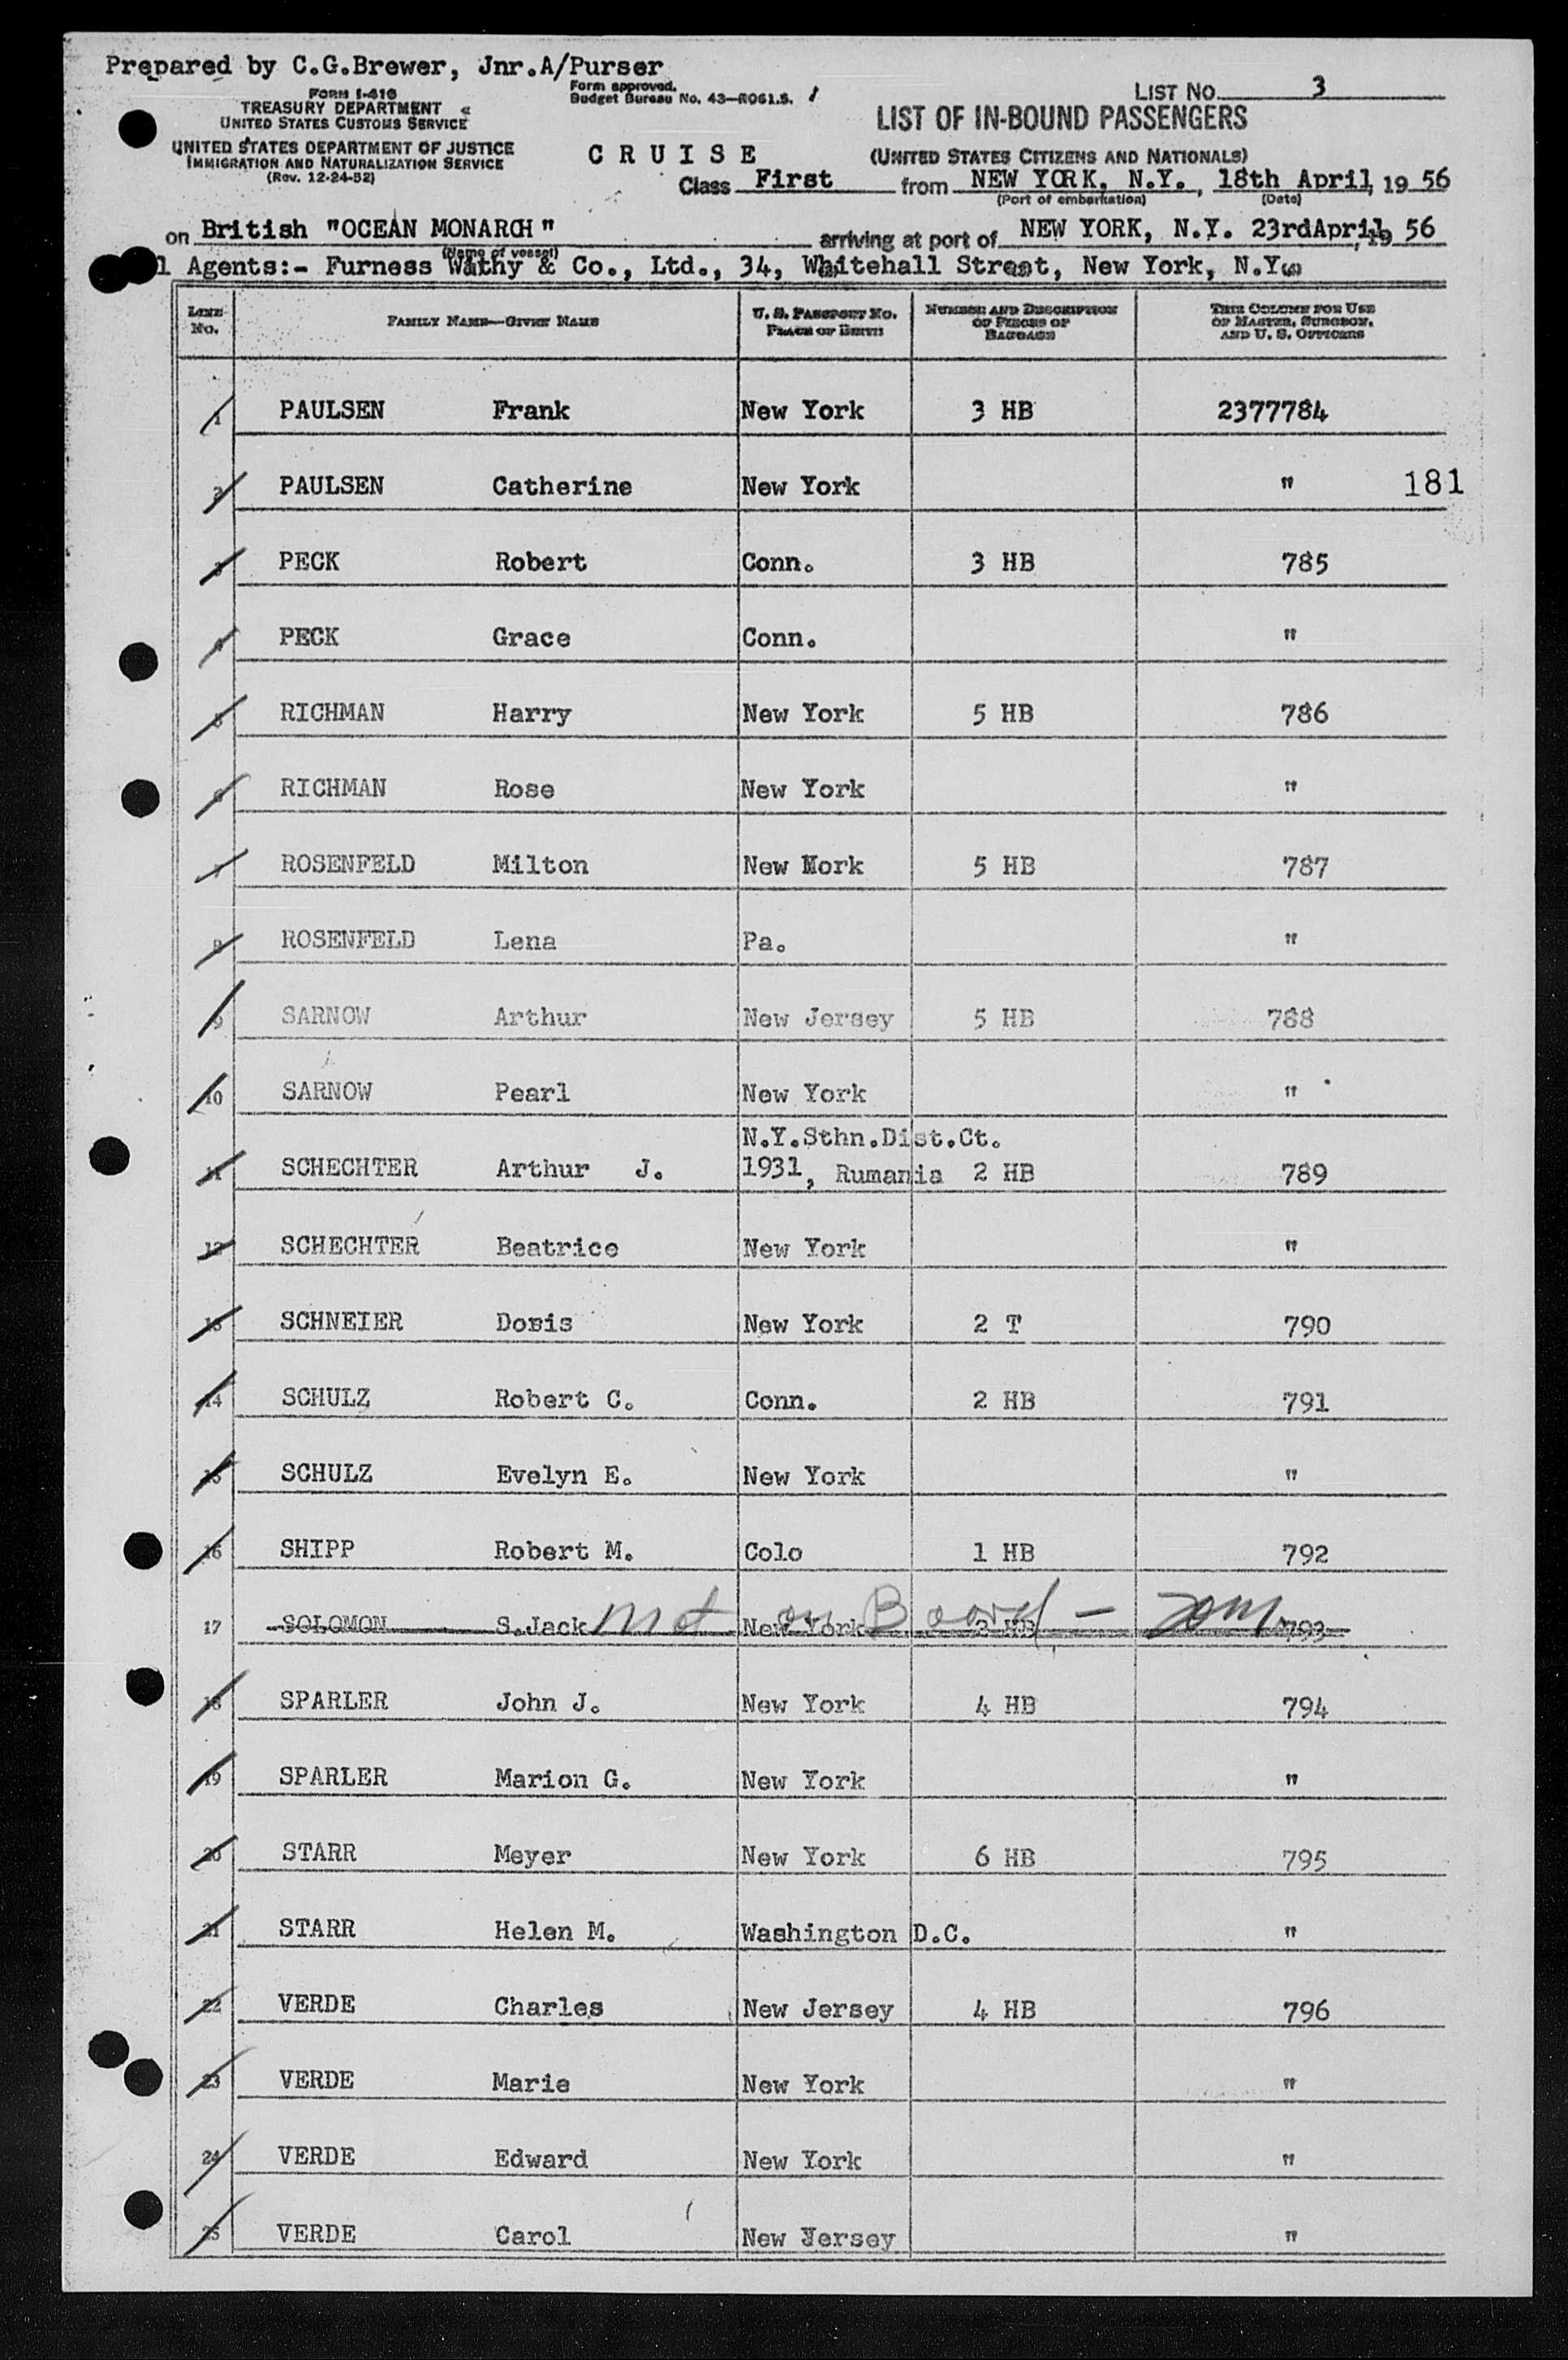 Prepared by C.G.Brewer, Jnr.A/Purser
FORM I-418
TREASURY DEPARTMENT
UNITED STATES CUSTOMS SERVICE
UNITED STATES DEPARTMENT OF JUSTICE
IMMIGRATION AND NATURALIZATION SERVICE
(Rev. 12-24-52)
Form approved.
Budget Bureau No. 43—R061.5.
LIST NO. 3
LIST OF IN-BOUND PASSENGERS
(UNITED STATES CITIZENS AND NATIONALS)
CRUISE
Class First from NEW YORK, N.Y., 18th April, 19 56
(Port of embarkation) (Date)
on British "OCEAN MONARCH" arriving at port of NEW YORK, N.Y. 23rdApril, 19 56
(Name of vessel)
l Agents:- Furness Wathy & Co., Ltd., 34, Whitehall Street, New York, N.Y.
LINE NO. FAMILY NAME—GIVEN NAME U. S. PASSPORT NO. PLACE OF BIRTH NUMBER AND DESCRIPTION OF PIECES OF BAGGAGE THIS COLUMN FOR USE OF MASTER, SURGEON, AND U. S. OFFICERS
1 PAULSEN Frank New York 3 HB 2377784
2 PAULSEN Catherine New York " 181
3 PECK Robert Conn. 3 HB 785
4 PECK Grace Conn. "
5 RICHMAN Harry New York 5 HB 786
6 RICHMAN Rose New York "
7 ROSENFELD Milton New York 5 HB 787
8 ROSENFELD Lena Pa. "
9 SARNOW Arthur New Jersey 5 HB 788
10 SARNOW Pearl New York "
N.Y.Sthn.Dist.Ct.
11 SCHECHTER Arthur J. 1931, Rumania 2 HB 789
12 SCHECHTER Beatrice New York "
13 SCHNEIER Doris New York 2 T 790
14 SCHULZ Robert C. Conn. 2 HB 791
15 SCHULZ Evelyn E. New York "
16 SHIPP Robert M. Colo 1 HB 792
17 SOLOMON S.Jack New York 2 HB 793
Not on Board -
18 SPARLER John J. New York 4 HB 794
19 SPARLER Marion G. New York "
20 STARR Meyer New York 6 HB 795
21 STARR Helen M. Washington D.C. "
22 VERDE Charles New Jersey 4 HB 796
23 VERDE Marie New York "
24 VERDE Edward New York "
25 VERDE Carol New Jersey "